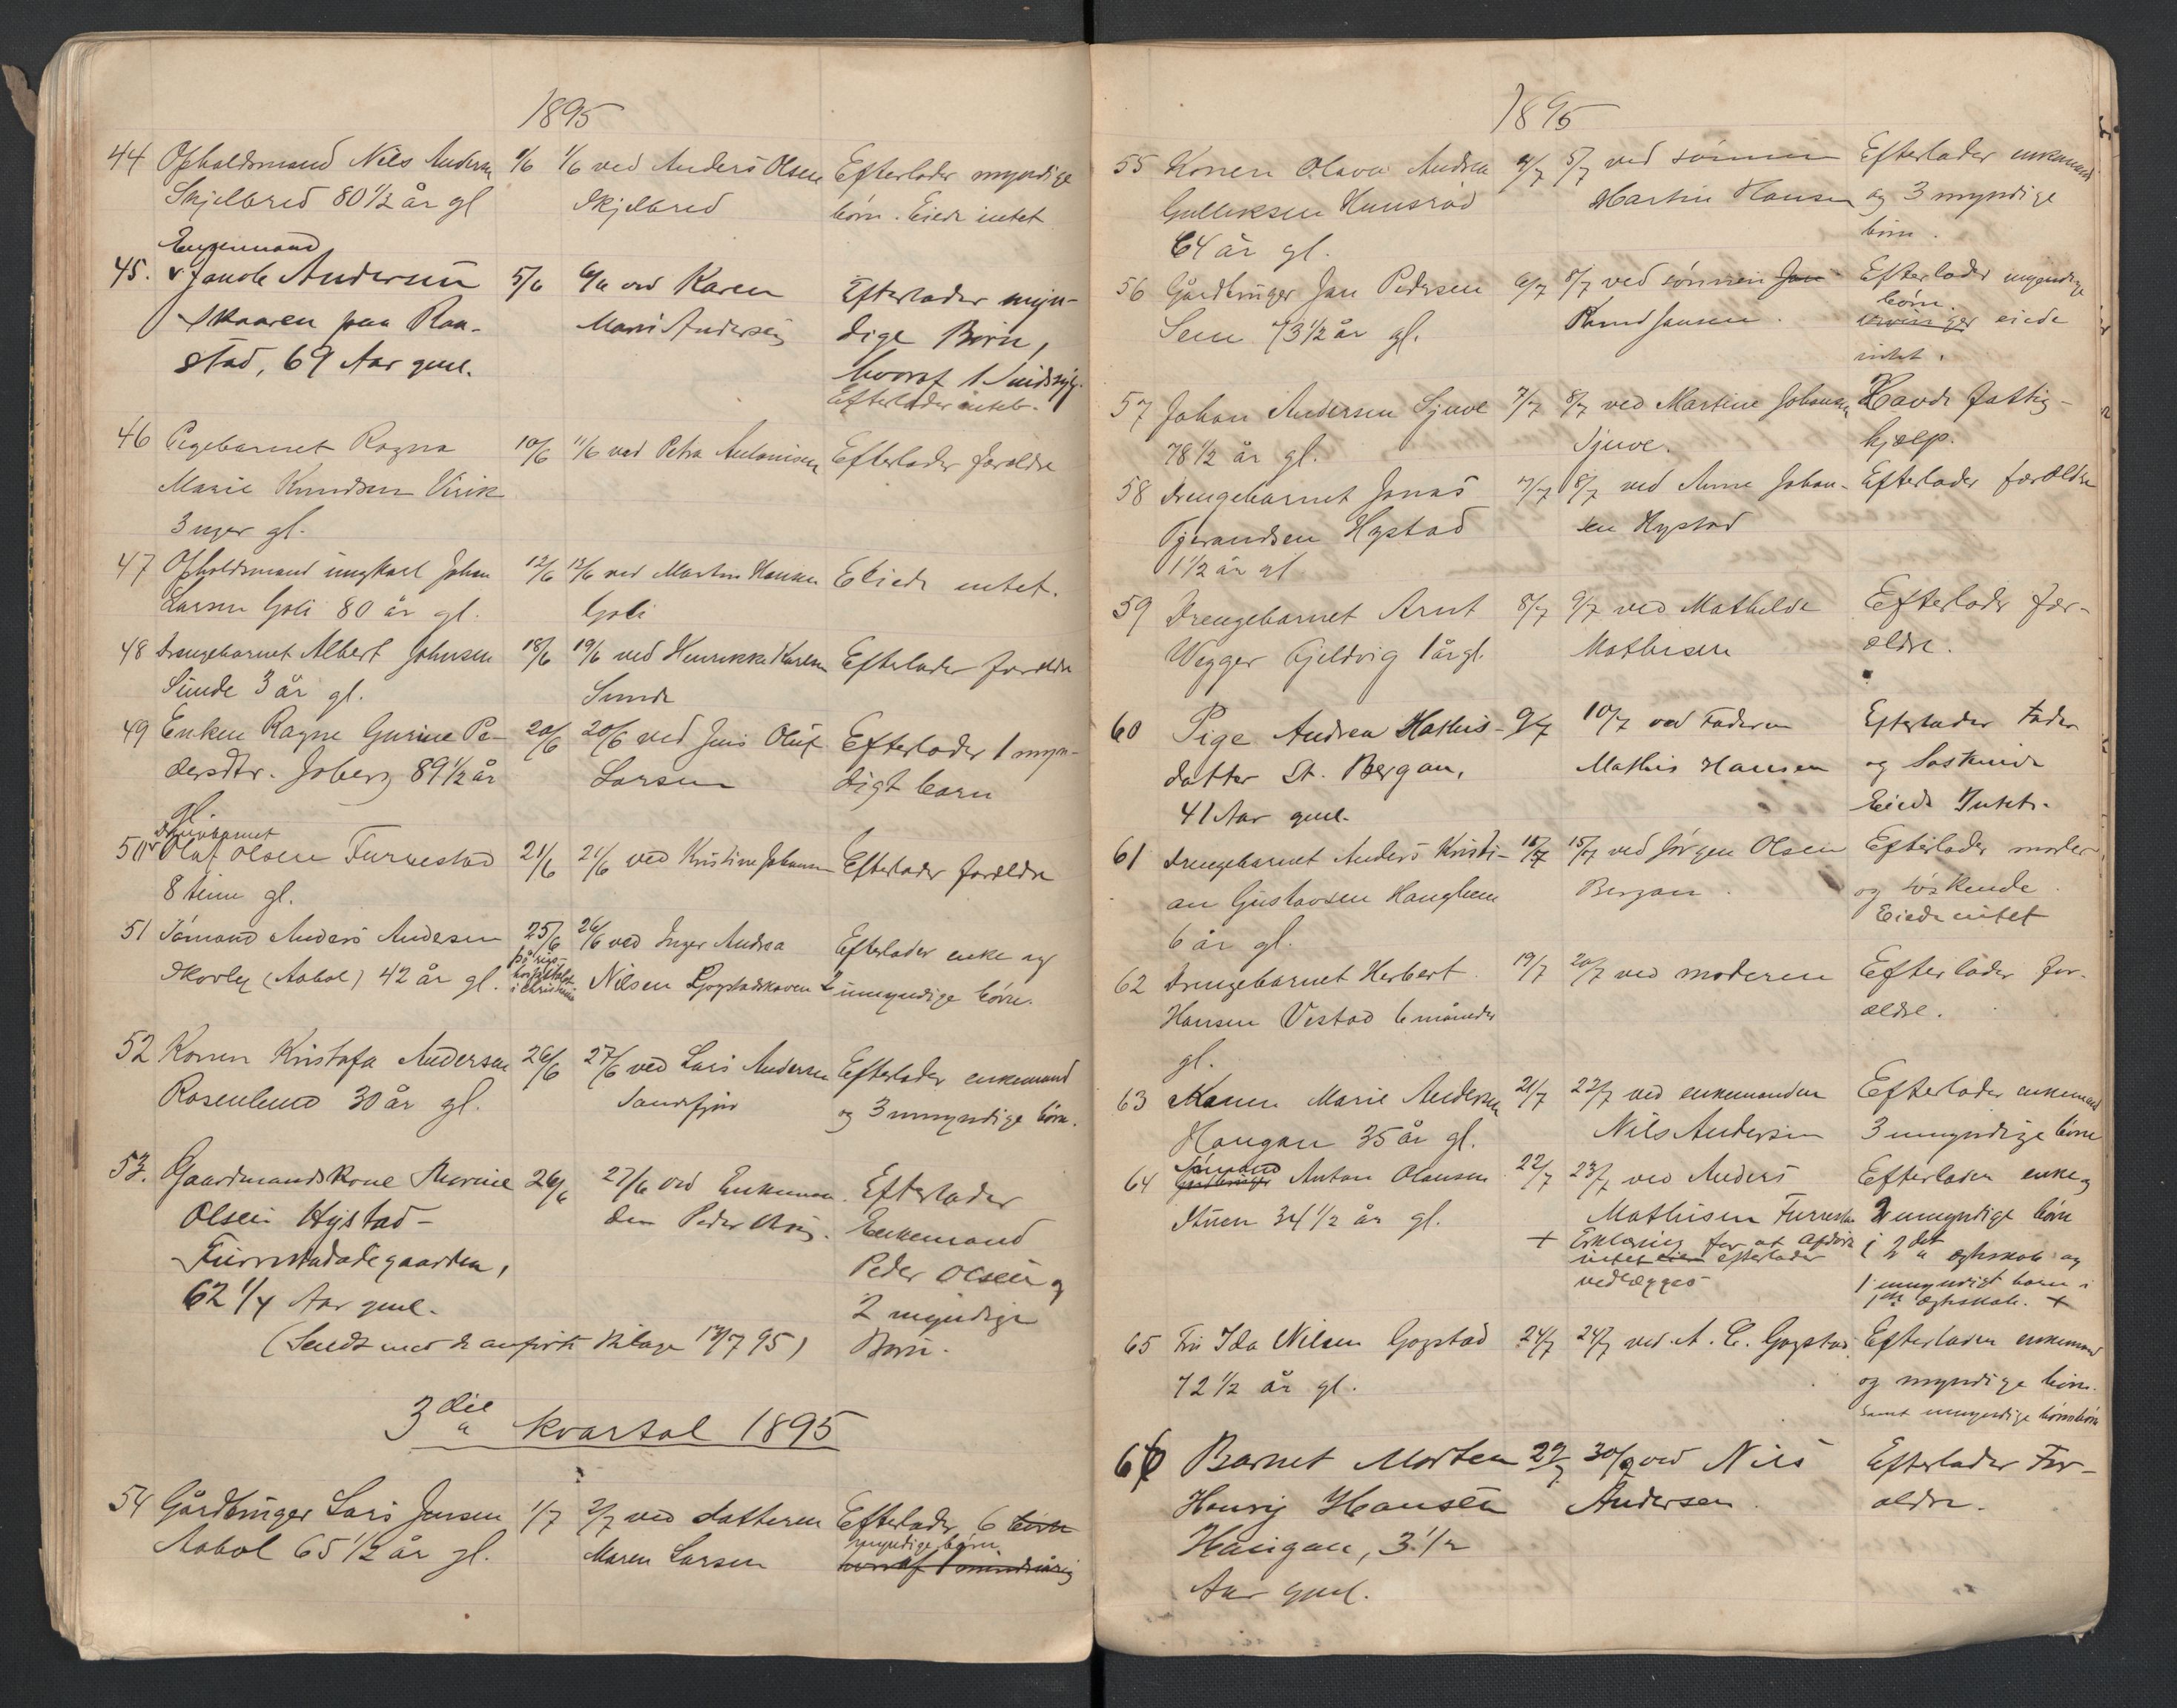 1895
44 Opholdsmand Nils Andersen 1/6 1/6 ved Anders Olsen Efterlader myndige
Skjelbred 80 1/2 år gl Skjelbred børn. Eiede intet
Enkemand
45. v Jacob Andersen 5/6 6/6 ved Karen Efterlader myn-
Skaaren paa Raa- Mari Andersen dige Børn,
stad, 69 Aar gml. hvoraf 1 Sindssyg.
Efterlader intet.
46 Pigebarnet Ragna 10/6 11/6 ved Petra Antonisen Efterlader foreldre
Marie Knudsen Virik
3 uger gl.
47 Opholdsmand ungkarl Johan 12/6 12/6 ved Martin Hansen Eiede intet.
Larsen Goli 80 år gl. Goli
48 Drengebarnet Albert Johnsen 18/6 19/6 ved Henrikke Karlsen Efterlader foreldre
Sunde 3 år gl. Sunde
49 Enken Ragne Gurine Pe- 20/6 20/6 ved Jens Oluf Efterlader 1 myn-
dersdtr. Joberg 89 1/2 år Larsen digt barn
gl.
Drengebarnet
50 v Olaf Olsen Furustad 21/6 21/6 ved Kristine Johansen Efterlader foreldre
8 timer gl.
51 Sømand Anders Andersen 25/6 26/6 ved Inger Andrea Efterlader enke og
på rigs-
hospitalet
i Christiania
Skovly (Aabol) 42 år gl. Nilsen Gogstadskoven 2 umyndige børn.
52 Konen Kristofa Andersen 26/6 27/6 ved Lars Andersen Efterlader enkemand
Rosenlund 30 år gl. Sandefjord og 3 umyndige børn.
53. Gaardmandskone Thorine 26/6 27/6 ved Enkeman- Efterlader
Olsen Hystad- den Peder Olsen. Enkemand
Furustadødegaarden, Peder Olsen og
62 1/4 Aar gml. 2 myndige
(Sendt med de anførte Bilage 17/7 95) Børn.
3die kvartal 1895
54 Gårdbruger Lars Jensen 1/7 2/7 ved datteren Efterlader 6 børn
Aabol 65 1/2 år gl. Maren Larsen myndige børn
hvoraf 1 mindreårig
1895
55 Konen Olava Andrea 4/7 5/7 ved sønnen Efterlader enkemand
Gulliksen Hunsrød Martin Hansen og 3 myndige
64 år gl. børn.
56 Gårdbruger Jan Pedersen 6/7 8/7 ved sønnen Jan Efterlader myndige
Sem 73 1/2 år gl. Knud Jansen. børn.
eiede
intet.
57 Johan Andersen Tjuve 7/7 8/7 ved Martine Johansen Havde fattig-
78 1/2 år gl. Tjuve. hjælp.
58 Drengebarnet Jonas 7/7 8/7 ved Anne Johan- Efterlader forældre
Tjerandsen Hystad sen Hystad
1 1/2 år gl
59 Drengebarnet Arnt 8/7 9/7 ved Mathilde Efterlader for-
Wegger Fjeldvig 1 år gl. Mathisen ældre.
60 Pige Andrea Mathis- 9/7 10/7 ved Faderen Efterlader Fader
datter St. Bergan, Mathis Hansen og Søskende
41 Aar gml. Eiede Intet.
61 Drengebarnet Anders Kristi- 15/7 15/7 ved Jørgen Olsen Efterlader moder
an Gustavsen Haughem Bergan. og søskende.
6 år gl. Eiede intet
62 Drengebarnet Herbert 19/7 20/7 ved moderen Efterlader for-
Hansen Vestad 6 måneder ældre.
gl.
63 Konen Marie Andersen 21/7 22/7 ved enkemanden Efterlader enkemand
Haugan 35 år gl. Nils Andersen 3 umyndige børn
Sømand
64 Gårdbruger Anton Olausen 22/7 23/7 ved Anders Efterlader enke og
Stuen 34 1/2 år gl. Mathisen Furustad 2 umyndige børn
+ Erklæring for at afdøde i 2det ægteskab og
intet efterlader 1 umyndigt barn i
vedlægges 1ste ægteskab. +
65 Fru Ida Nilsen Gogstad 24/7 24/7 ved A. C. Gogstad Efterlader enkemand
72 1/2 år gl. og myndige børn.
samt umyndige børnebørn
66 Barnet Morten 29/7 30/7 ved Nils Efterlader For-
Henry Hansen Andersen. ældre.
Haugan, 3 1/2
Aar gml.